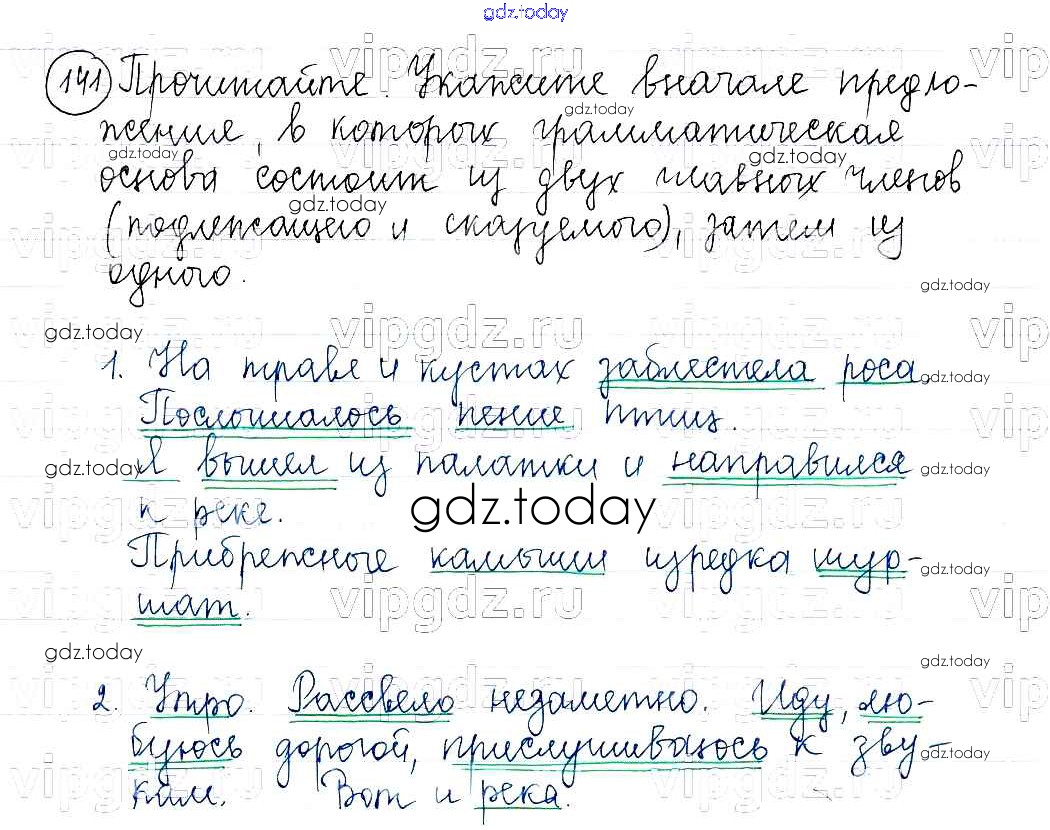 gdz.today
141 Прочитайте. Укажите вначале предло-
жения, в которых грамматическая
основа состоит из двух главных членов
(подлежащего и сказуемого), затем из
одного.
1. На траве и кустах заблестела роса.
Послышалось пение птиц.
Я вышел из палатки и направился
к реке.
gdz.today
Прибрежные камыши изредка шур-
шат.
2. Утро. Рассвело незаметно. Иду, лю-
буюсь дорогой, прислушиваюсь к зву-
кам. Вот и река.